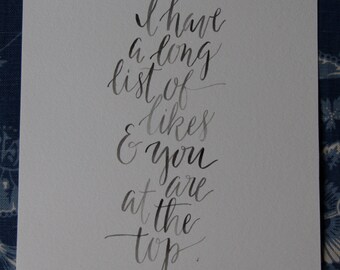 I have
a long
list of
likes
& you
are
at the
top.